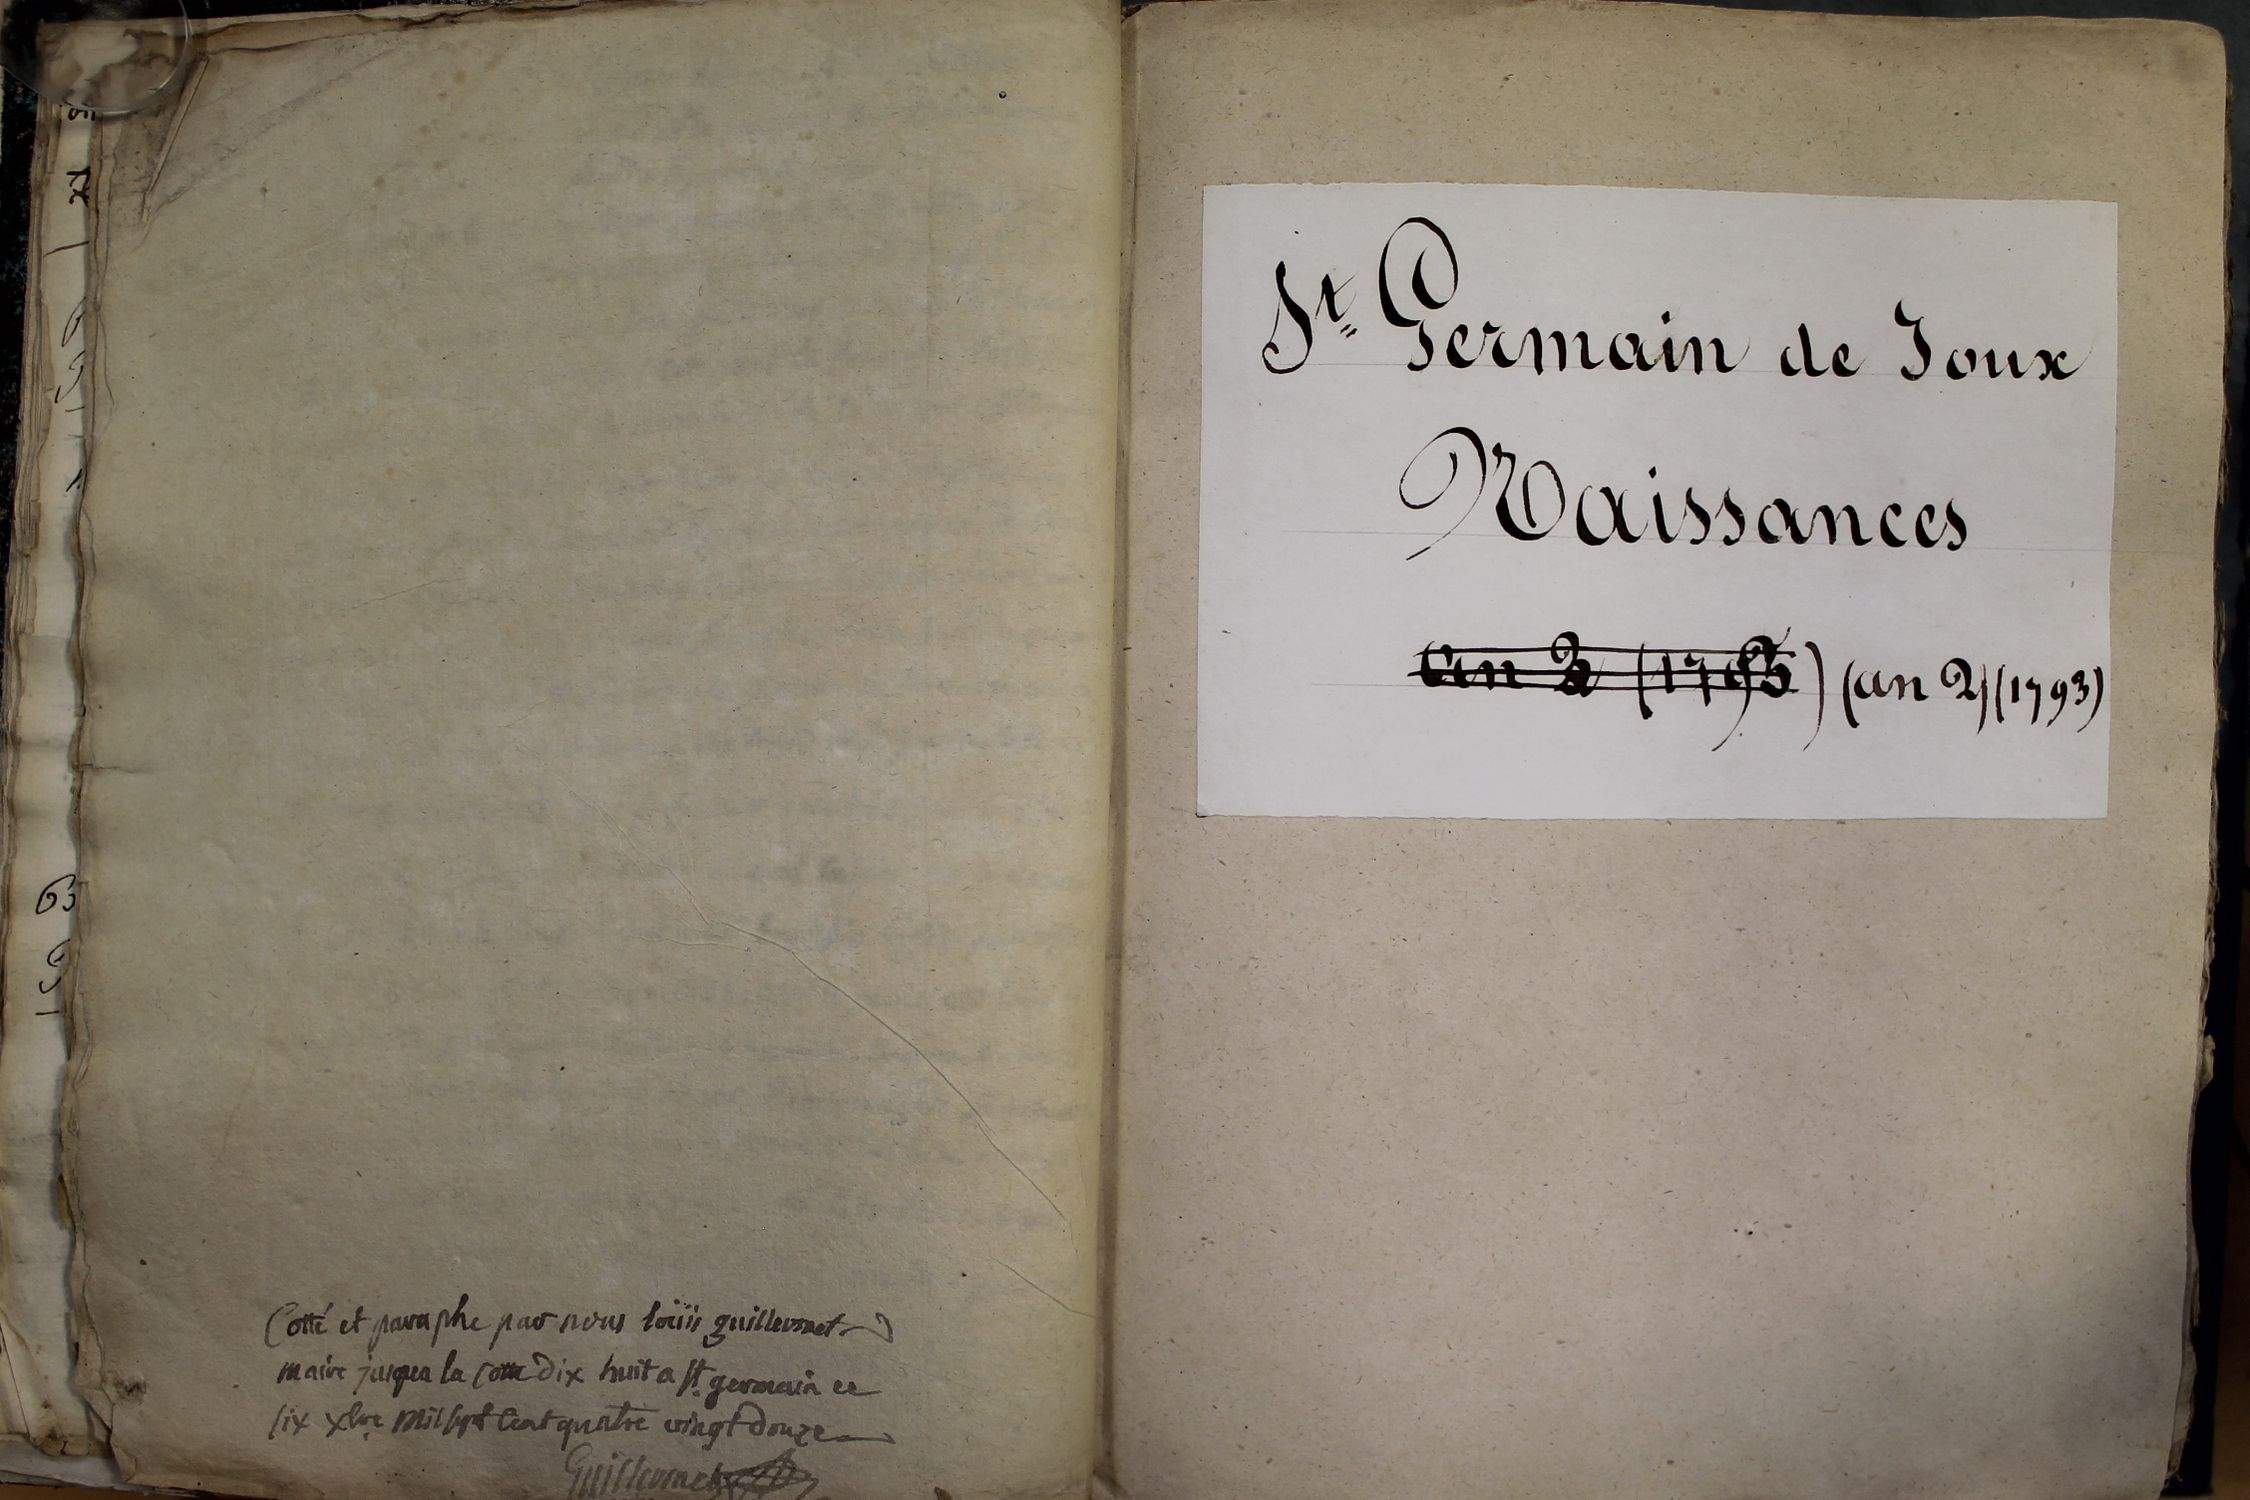 Cotté et paraphe par nous loüis guillermet
maire jusqua la cotte dix huit a St germain ce
six xbre mil sept cent quatre vingt douze
Guillermet
St Germain de Joux
Naissances
an 2 (1795) (an 2) (1793)